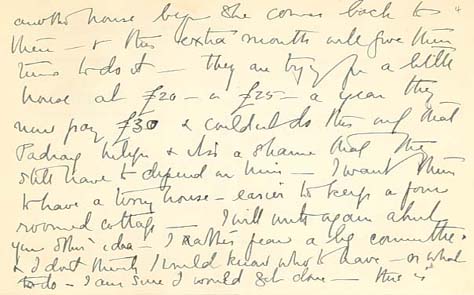 another house before she comes back to
them - & this extra month will give them
time to do it - they are trying for a little
house at £20 - or £25 - a year they
now pay £30 & couldn't do this only that
Padraig helps & it is a shame that they
still have to depend on him - I want them
to have a tiny house - easier to keep a four
roomed cottage - I will write again about
your other idea - I rather fear a big committee.
& I don't think I would know who to have - or what
to do - I am sure I would get done - this is